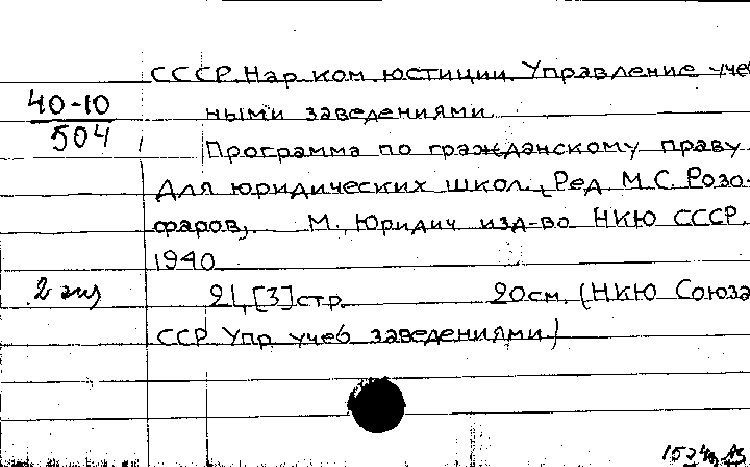 СССР. Нар. ком. юстиции. Управление учеб-
40-10
504
ными заведениями.
Программа по гражданскому праву
Для юридических школ. (Ред. М.С. Розо-
фаров). М., Юридич. изд-во НКЮ СССР,
1940
2 экз
21, [3] стр. 20 см. (НКЮ Союза
ССР. Упр. учеб. заведениями)